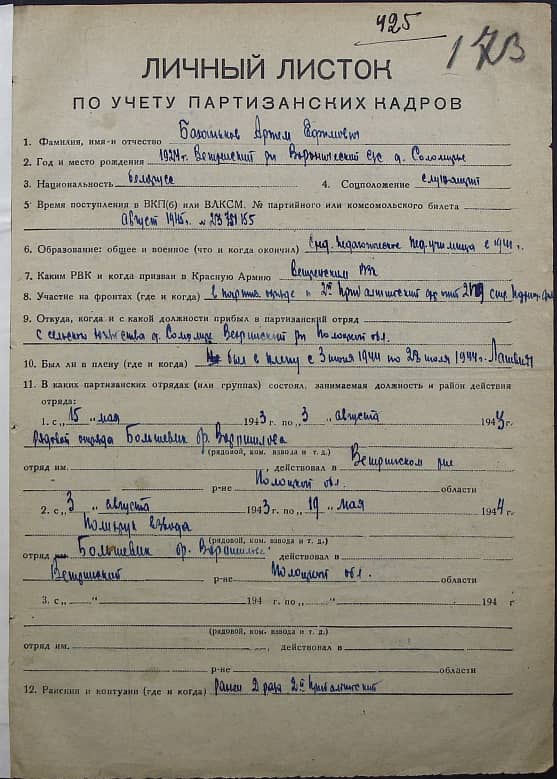 425
173
ЛИЧНЫЙ ЛИСТОК
ПО УЧЕТУ ПАРТИЗАНСКИХ КАДРОВ
1. Фамилия, имя и отчество Артем Ефимович
2. Год и место рождения 1924г. Ветринский рн с/с д.
3. Национальность белорусс 4. Соцположение служащий
5. Время поступления в ВКП(б) или ВЛКСМ. № партийного или комсомольского билета
Август 1945г. №
6. Образование: общее и военное (что и когда окончил) Сред. педагогическое Пед.училище с 1941 г.
7. Каким РВК и когда призван в Красную Армию Ветринским РВК
8. Участие на фронтах (где и когда) В парти. отряде и 2й Прибалтийский
9. Откуда, когда и с какой должности прибыл в партизанский отряд
с сельского д. Ветринский рн Полоцкой обл.
10. Был ли в плену (где и когда) был в плену с 3 июня 1944 по 23 июля 1944г.
11. В каких партизанских отрядах (или группах) состоял, занимаемая должность и район действия
отряда:
1. с „15 „ мая 1943 г. по „3 „ августа 1943г.
рядовой отряда Большевик бр. Ворошилова
(рядовой, ком. взвода и т. д.)
отряд им. , действовал в Ветринском рне
р-не Полоцкой обл. области
2. с „3 „ августа 1943 г. по „19 „ мая 1944 г.
Политрук взвода
(рядовой, ком. взвода и т. д.)
отряд Большевик бр. Ворошилова действовал в
Ветринский р-не Полоцкой обл. области
3. с „ „ 194 г. по „ „ 194 г
(рядовой, ком. взвода и т. д.)
отряд им. , действовал в
р-не области
12. Ранения и контузии (где и когда) ранен 2 раза 2й Прибалтийский